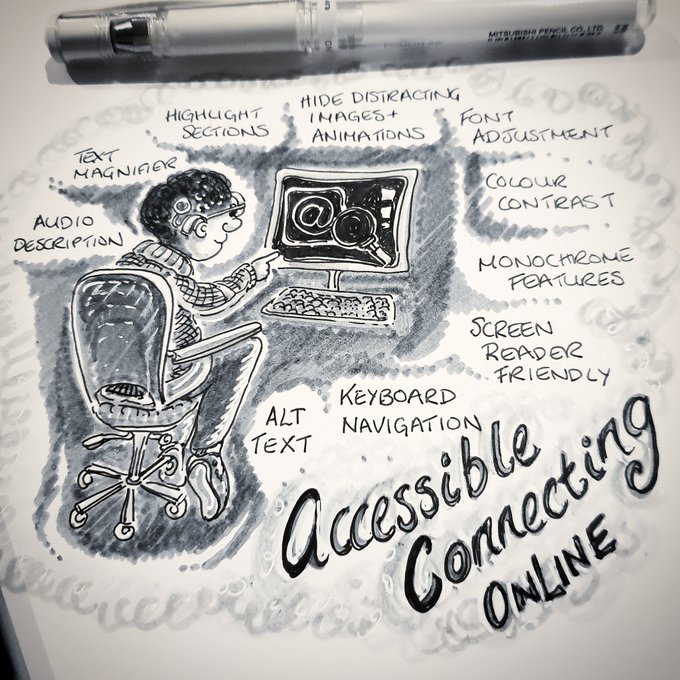 MITSUBISHI PENCIL CO., LTD
HIGHLIGHT
SECTIONS
HIDE DISTRACTING
IMAGES +
ANIMATIONS
FONT
ADJUSTMENT
TEXT
MAGNIFIER
COLOUR
CONTRAST
AUDIO
DESCRIPTION
@
MONOCHROME
FEATURES
SCREEN
READER
FRIENDLY
KEYBOARD
NAVIGATION
ALT
TEXT
Accessible
Connecting
ONLINE